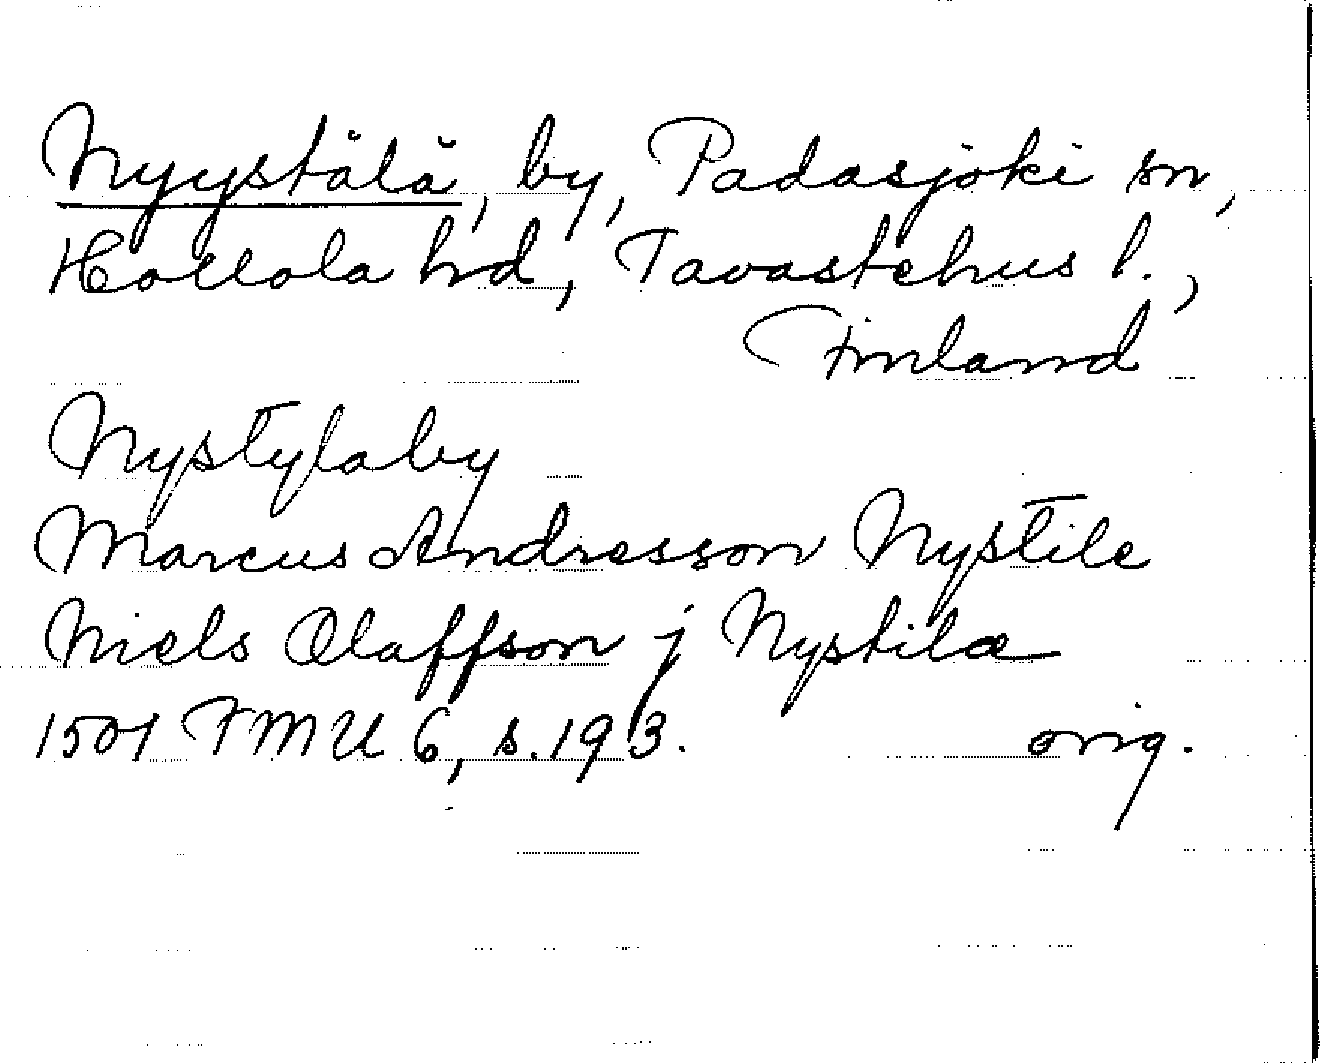 Nyystälä, by, Padasjoki sn,
Hollola hrd, Tavastehus l.,
Finland
Nystylaby
Marcus Andresson Nystile
Niels Olaffson j Nystilæ
1501 FMU 6, s. 193. orig.